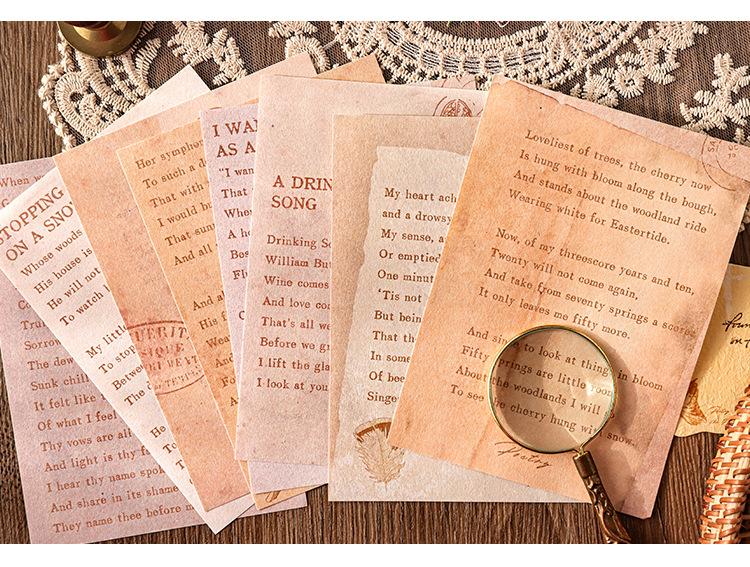 When we
Trun
Sorrow
The dew
Sunk chill
It felt like
Of what I feel
Thy vows are all
And light is thy f
I hear thy name spok
And share in its shame
They name thee before m
STOPPING
ON A SNO
Whose woods
His house is
He will not
To watch
My little
To stop
Between
The d
VERIT
SIQUE
UMENT
Her symphon
To such a d
That with
I would b
That sun
And all
And a
His f
Wea
An
For
And
I WAN
AS A
"I wan
That
Whe
A ho
Bes
Flu
A DRIN
SONG
Drinking So
William But
Wine comes
And love co
That's all we
Before we gr
I lift the gla
I look at you
My heart ach
and a drowsy
My sense, a
Or emptied
One minut
'Tis not
But bein
That th
In some
Of bee
Singe
Loveliest of trees, the cherry now
Is hung with bloom along the bough,
And stands about the woodland ride
Wearing white for Eastertide.
Now, of my threescore years and ten,
Twenty will not come again,
And take from seventy springs a score,
It only leaves me fifty more.
And since to look at things in bloom
Fifty springs are little room
About the woodlands I will
To see the cherry hung with snow.